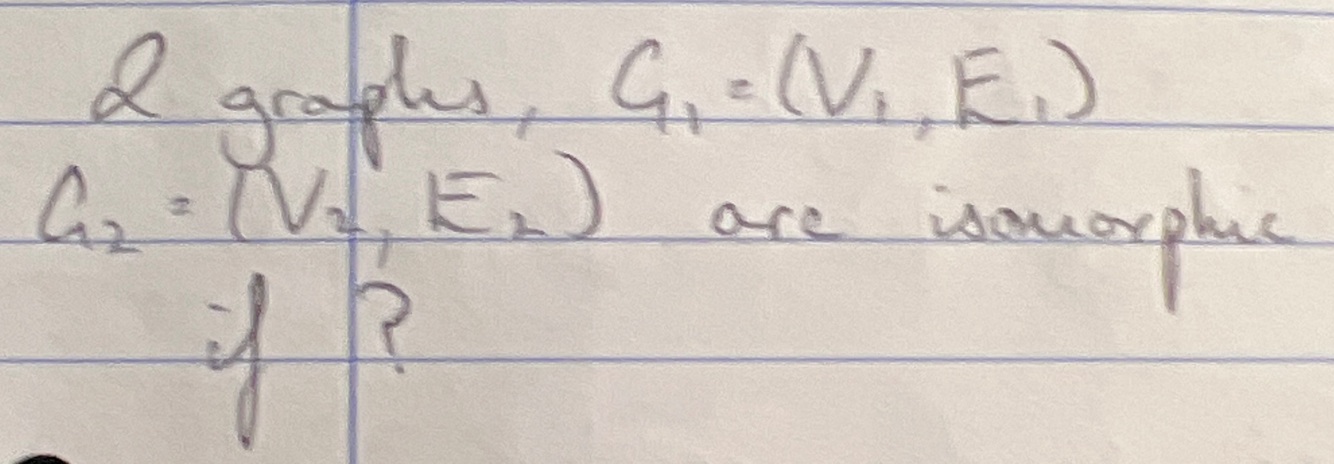 2 graphs, G₁ = (V₁, E₁)
G₂ = (V₂, E₂) are isomorphic
if ?